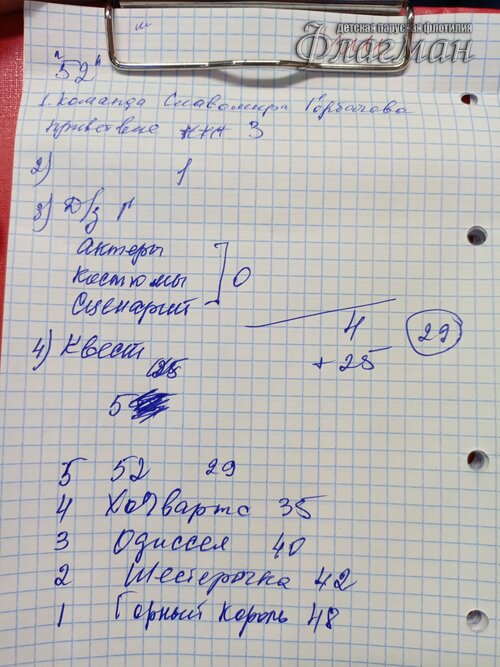 детская парусная флотилия
Флагман
"52"
1. Команда Славомира Горбачова
приветствие 3
2) 1
3) Д/з
Актеры
Костюмы 0
Сценарий
4 29
+ 25
4) Квест
25
5
5 52 29
4 Хогвартс 35
3 Одиссея 40
2 Шестерочка 42
1 Горный Король 48